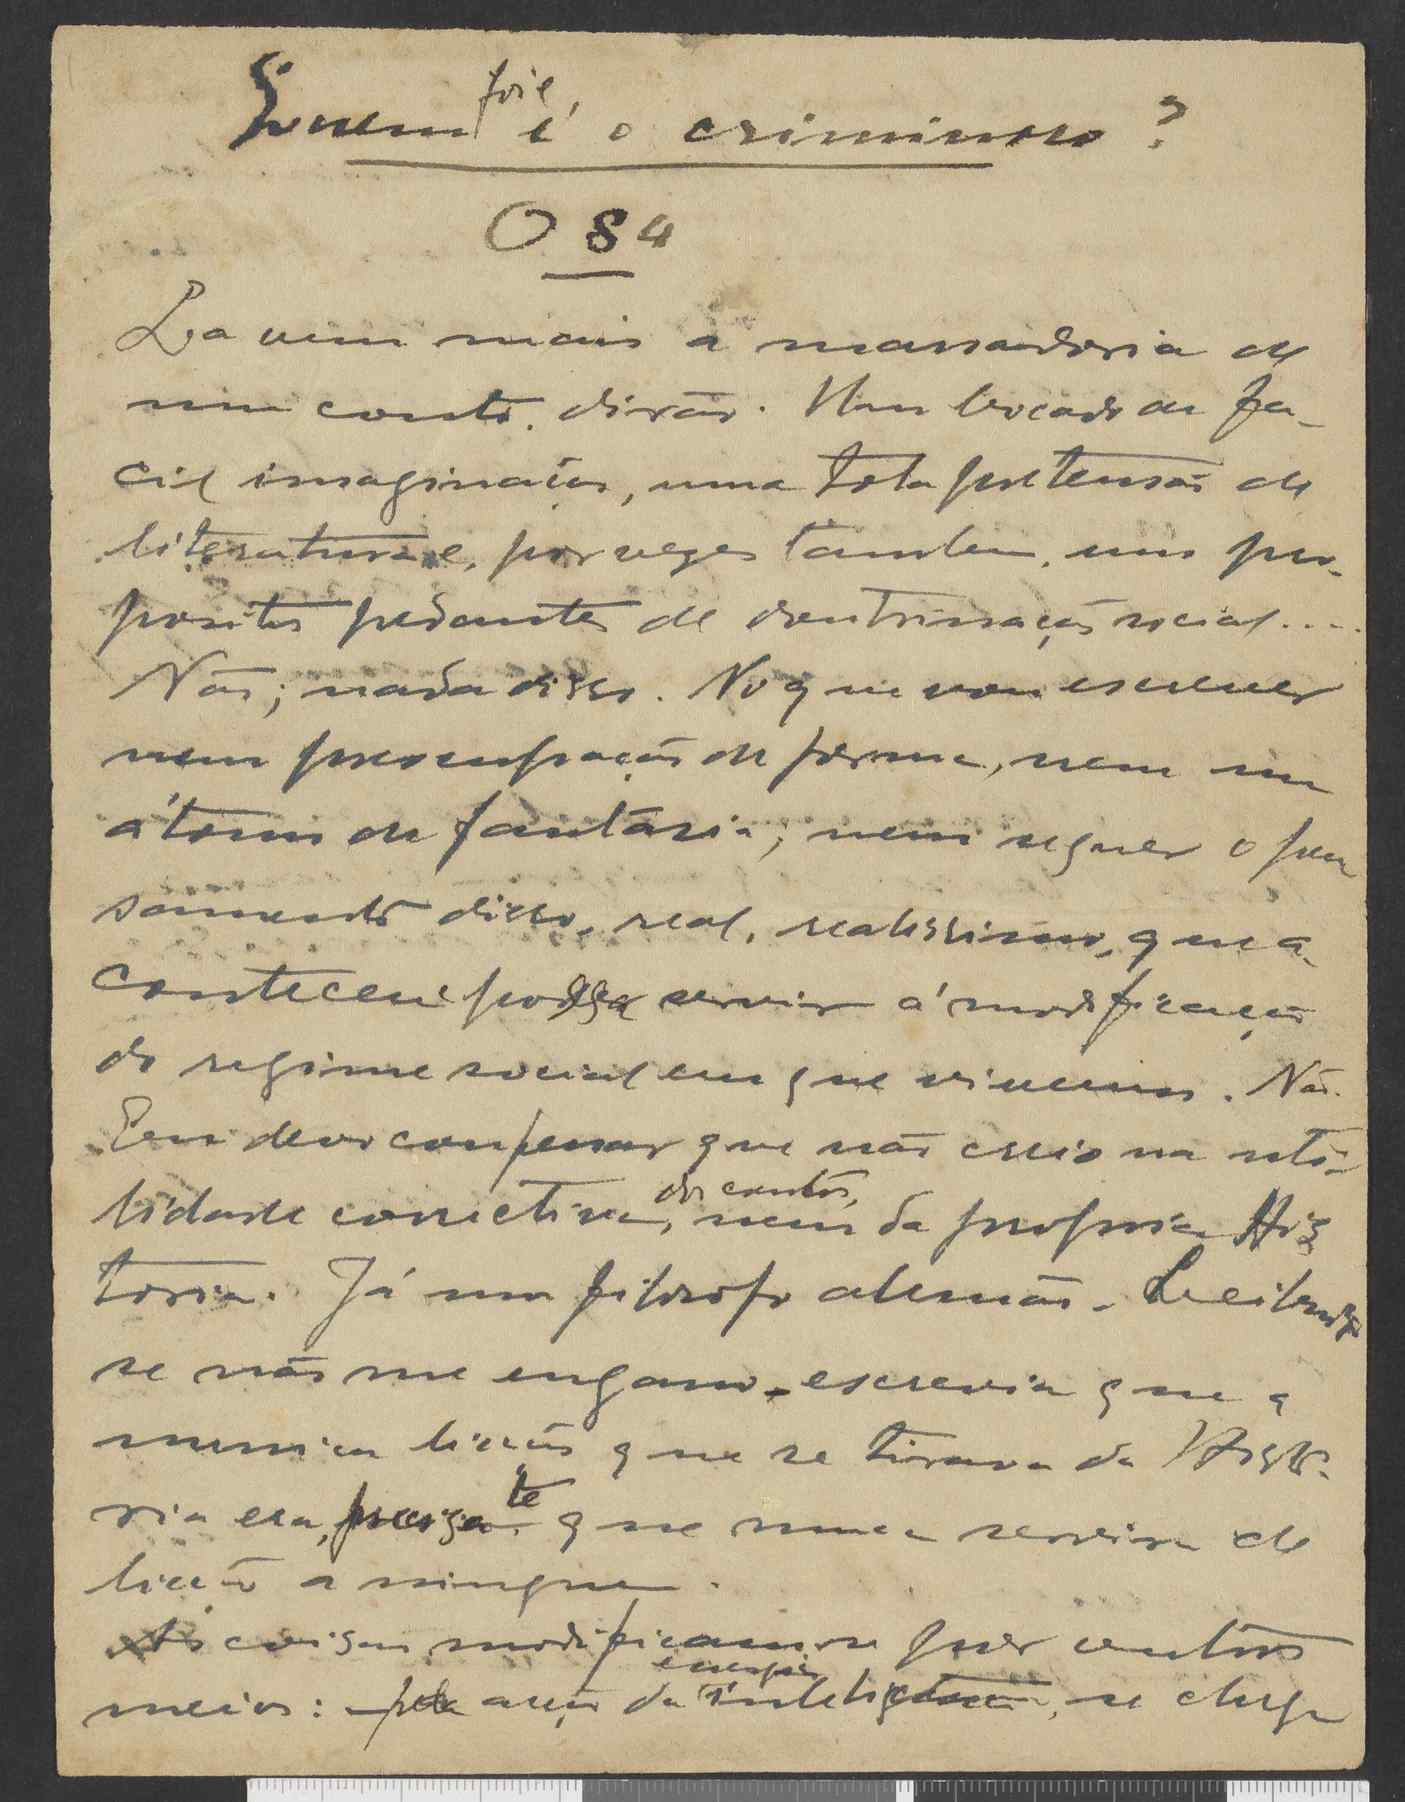 Quem foi e, é o criminoso?
O 84
La vem mais a massadoria de
um conto, dirão. Um bocado de fa-
cil imaginação, uma tola pretensão de
literatura e, por vezes tambem, um pro-
posito pedante de doutrinação social....
Não; nada disso. No que vou escrever
nem preocupação de forma, nem um
átomo de fantasia; nem sequer o pen
samento disso, real, realissimo, que a-
conteceu e possa servir á modificação
do regime social em que vivemos. Não.
Eu devo confessar que não creio na uti-
lidade correctiva dos contos, nem da propria His
toria. Já um filosofo alemão, Leibnitz
se não me engano, escrevia que a
unica lição que se tirava da Histo-
ria era, precisa te que nunca servira de
lição a ninguem.
As coisas modificam-se por outros
meios: pela ação da energia inteligencia, se chega